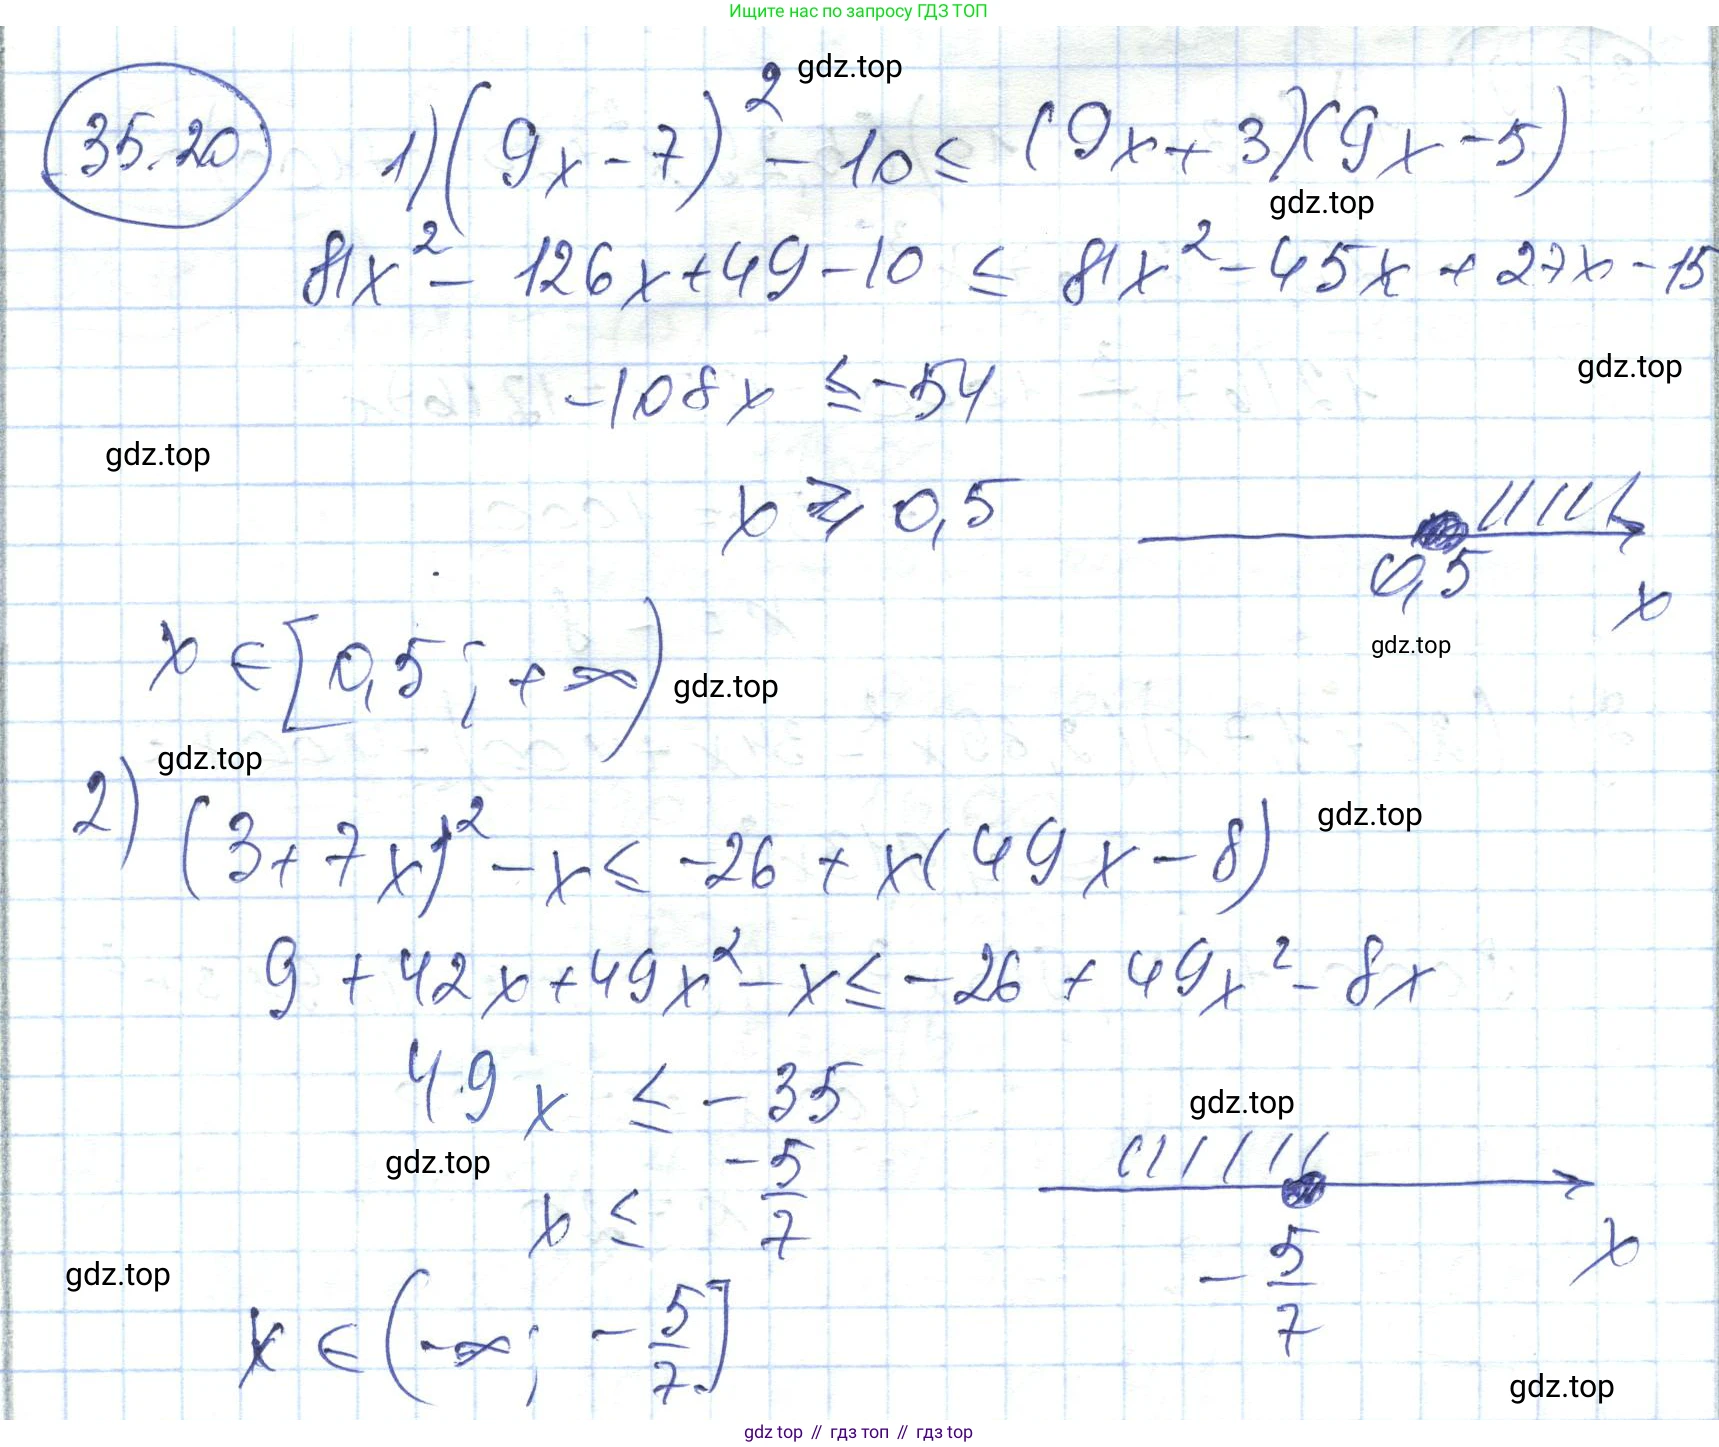 Ищите нас по запросу ГДЗ ТОП
gdz.top
35.20 1) (9x - 7)² - 10 ≤ (9x + 3)(9x - 5)
gdz.top
81x² - 126x + 49 - 10 ≤ 81x² - 45x + 27x - 15
gdz.top
-108x ≤ -54
gdz.top
x ⩾ 0,5
0,5
x
gdz.top
x ∈ [0,5; +∞)
gdz.top
gdz.top
2) (3 + 7x)² - x ≤ -26 + x(49x - 8)
gdz.top
9 + 42x + 49x² - x ≤ -26 + 49x² - 8x
49x ≤ -35
gdz.top
gdz.top
x ≤ -5/7
-5/7
x
gdz.top
x ∈ (-∞; -5/7]
gdz.top
gdz top // гдз топ // gdz top